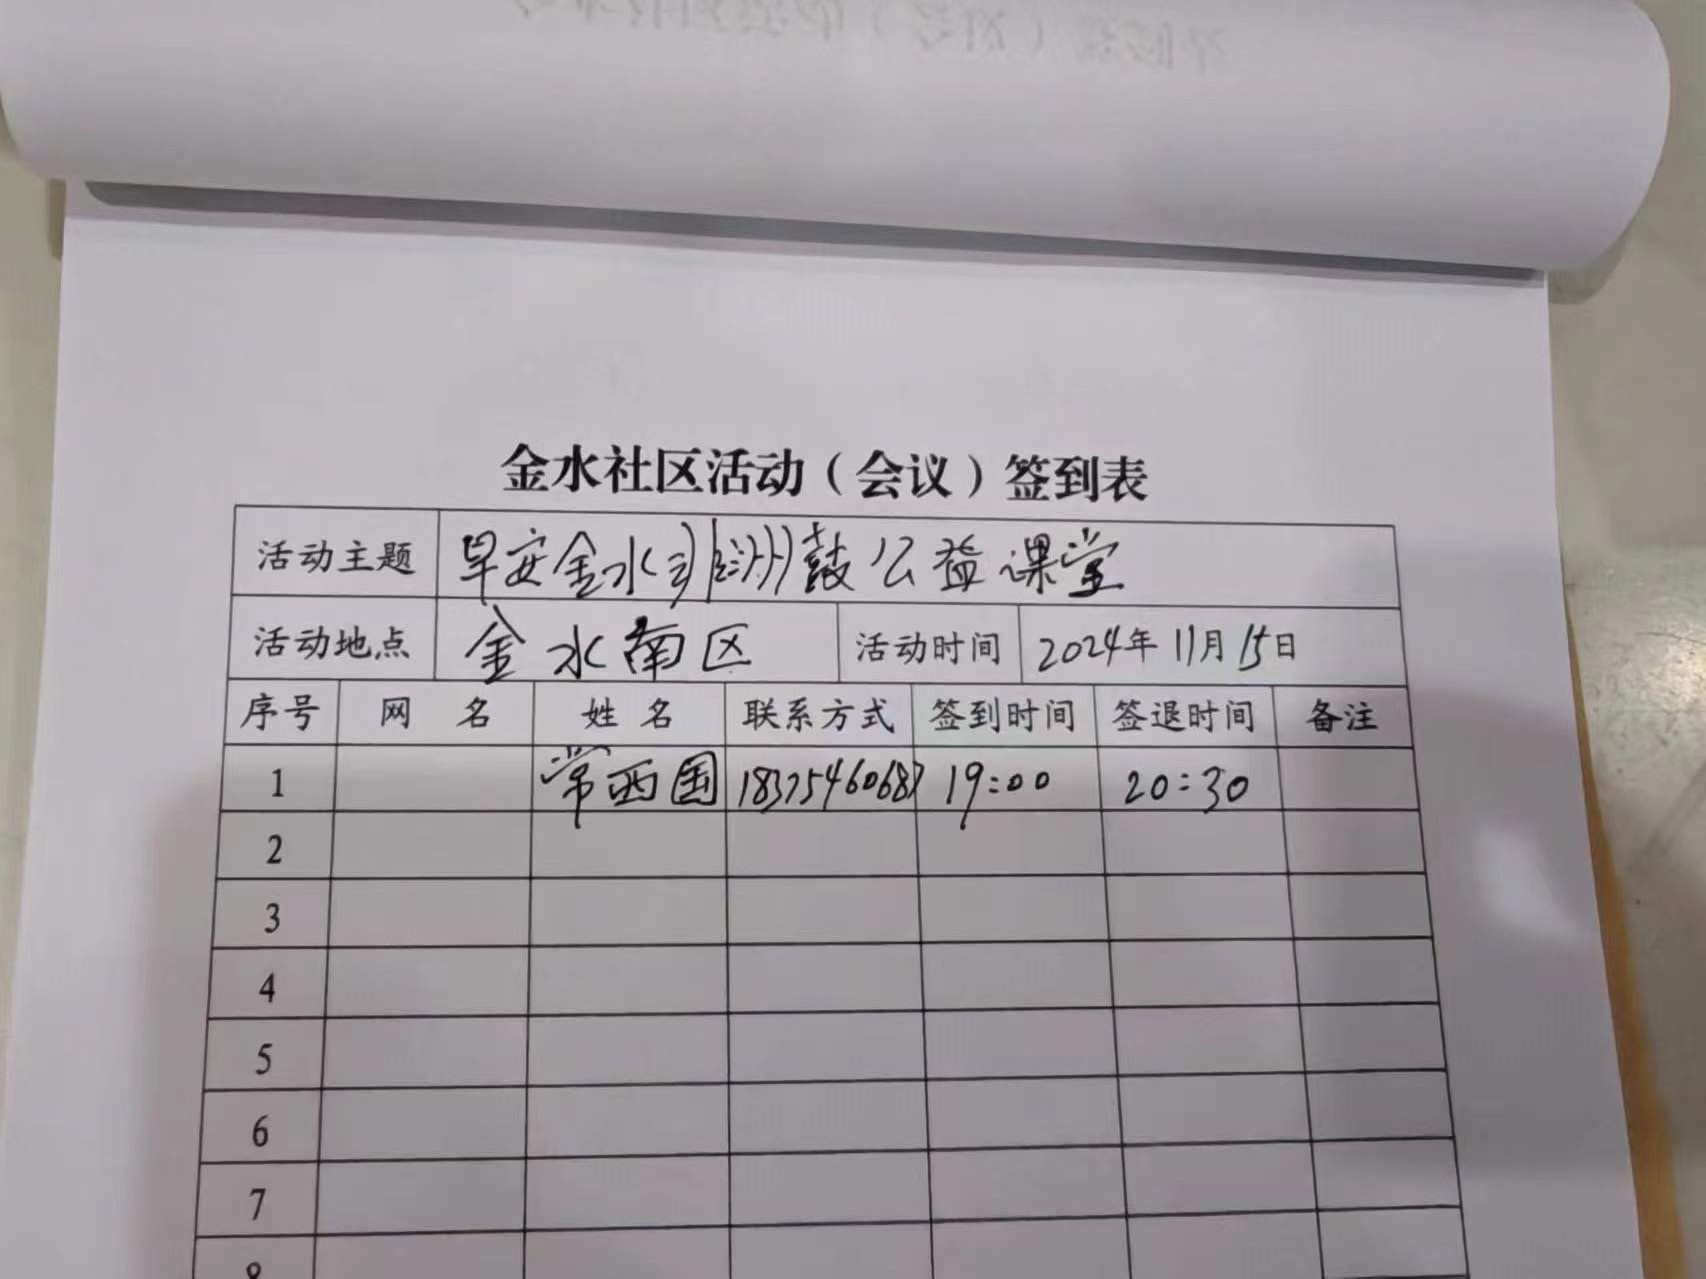 金水社区活动（会议）签到表
活动主题 早安金水非洲鼓公益课堂
活动地点 金水南区 活动时间 2024年11月15日
序号 网名 姓名 联系方式 签到时间 签退时间 备注
1 常西国 18375460687 19:00 20:30
2
3
4
5
6
7
8